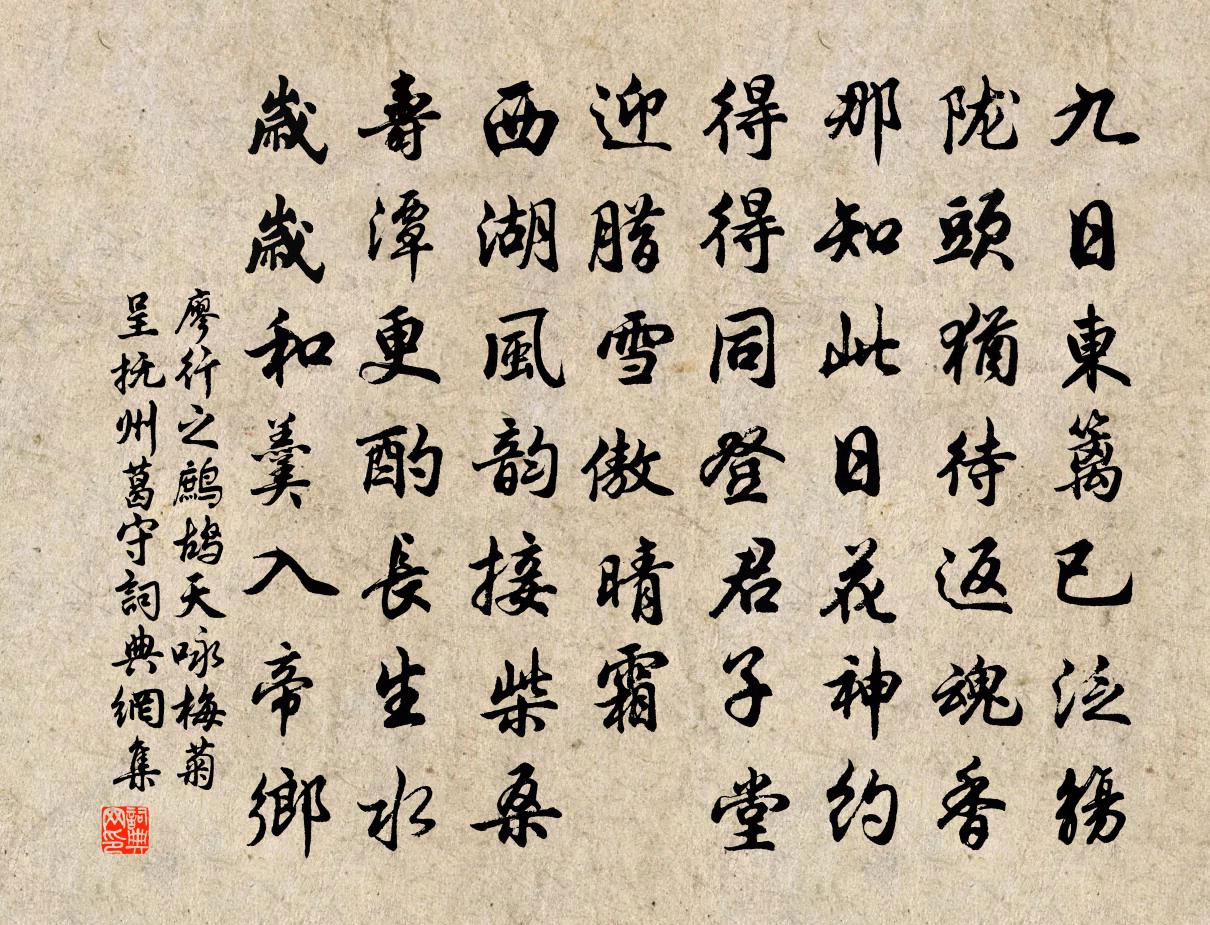 九日東籬已泛觴
陇頭猶待返魂香
那知此日花神約
得得同登君子堂
迎腊雪傲晴霜
西湖風韵接柴桑
壽潭更酌長生水
歲歲和羹入帝鄉
廖行之鷓鸪天咏梅菊
呈抚州葛守詞典網集
詞典
网印